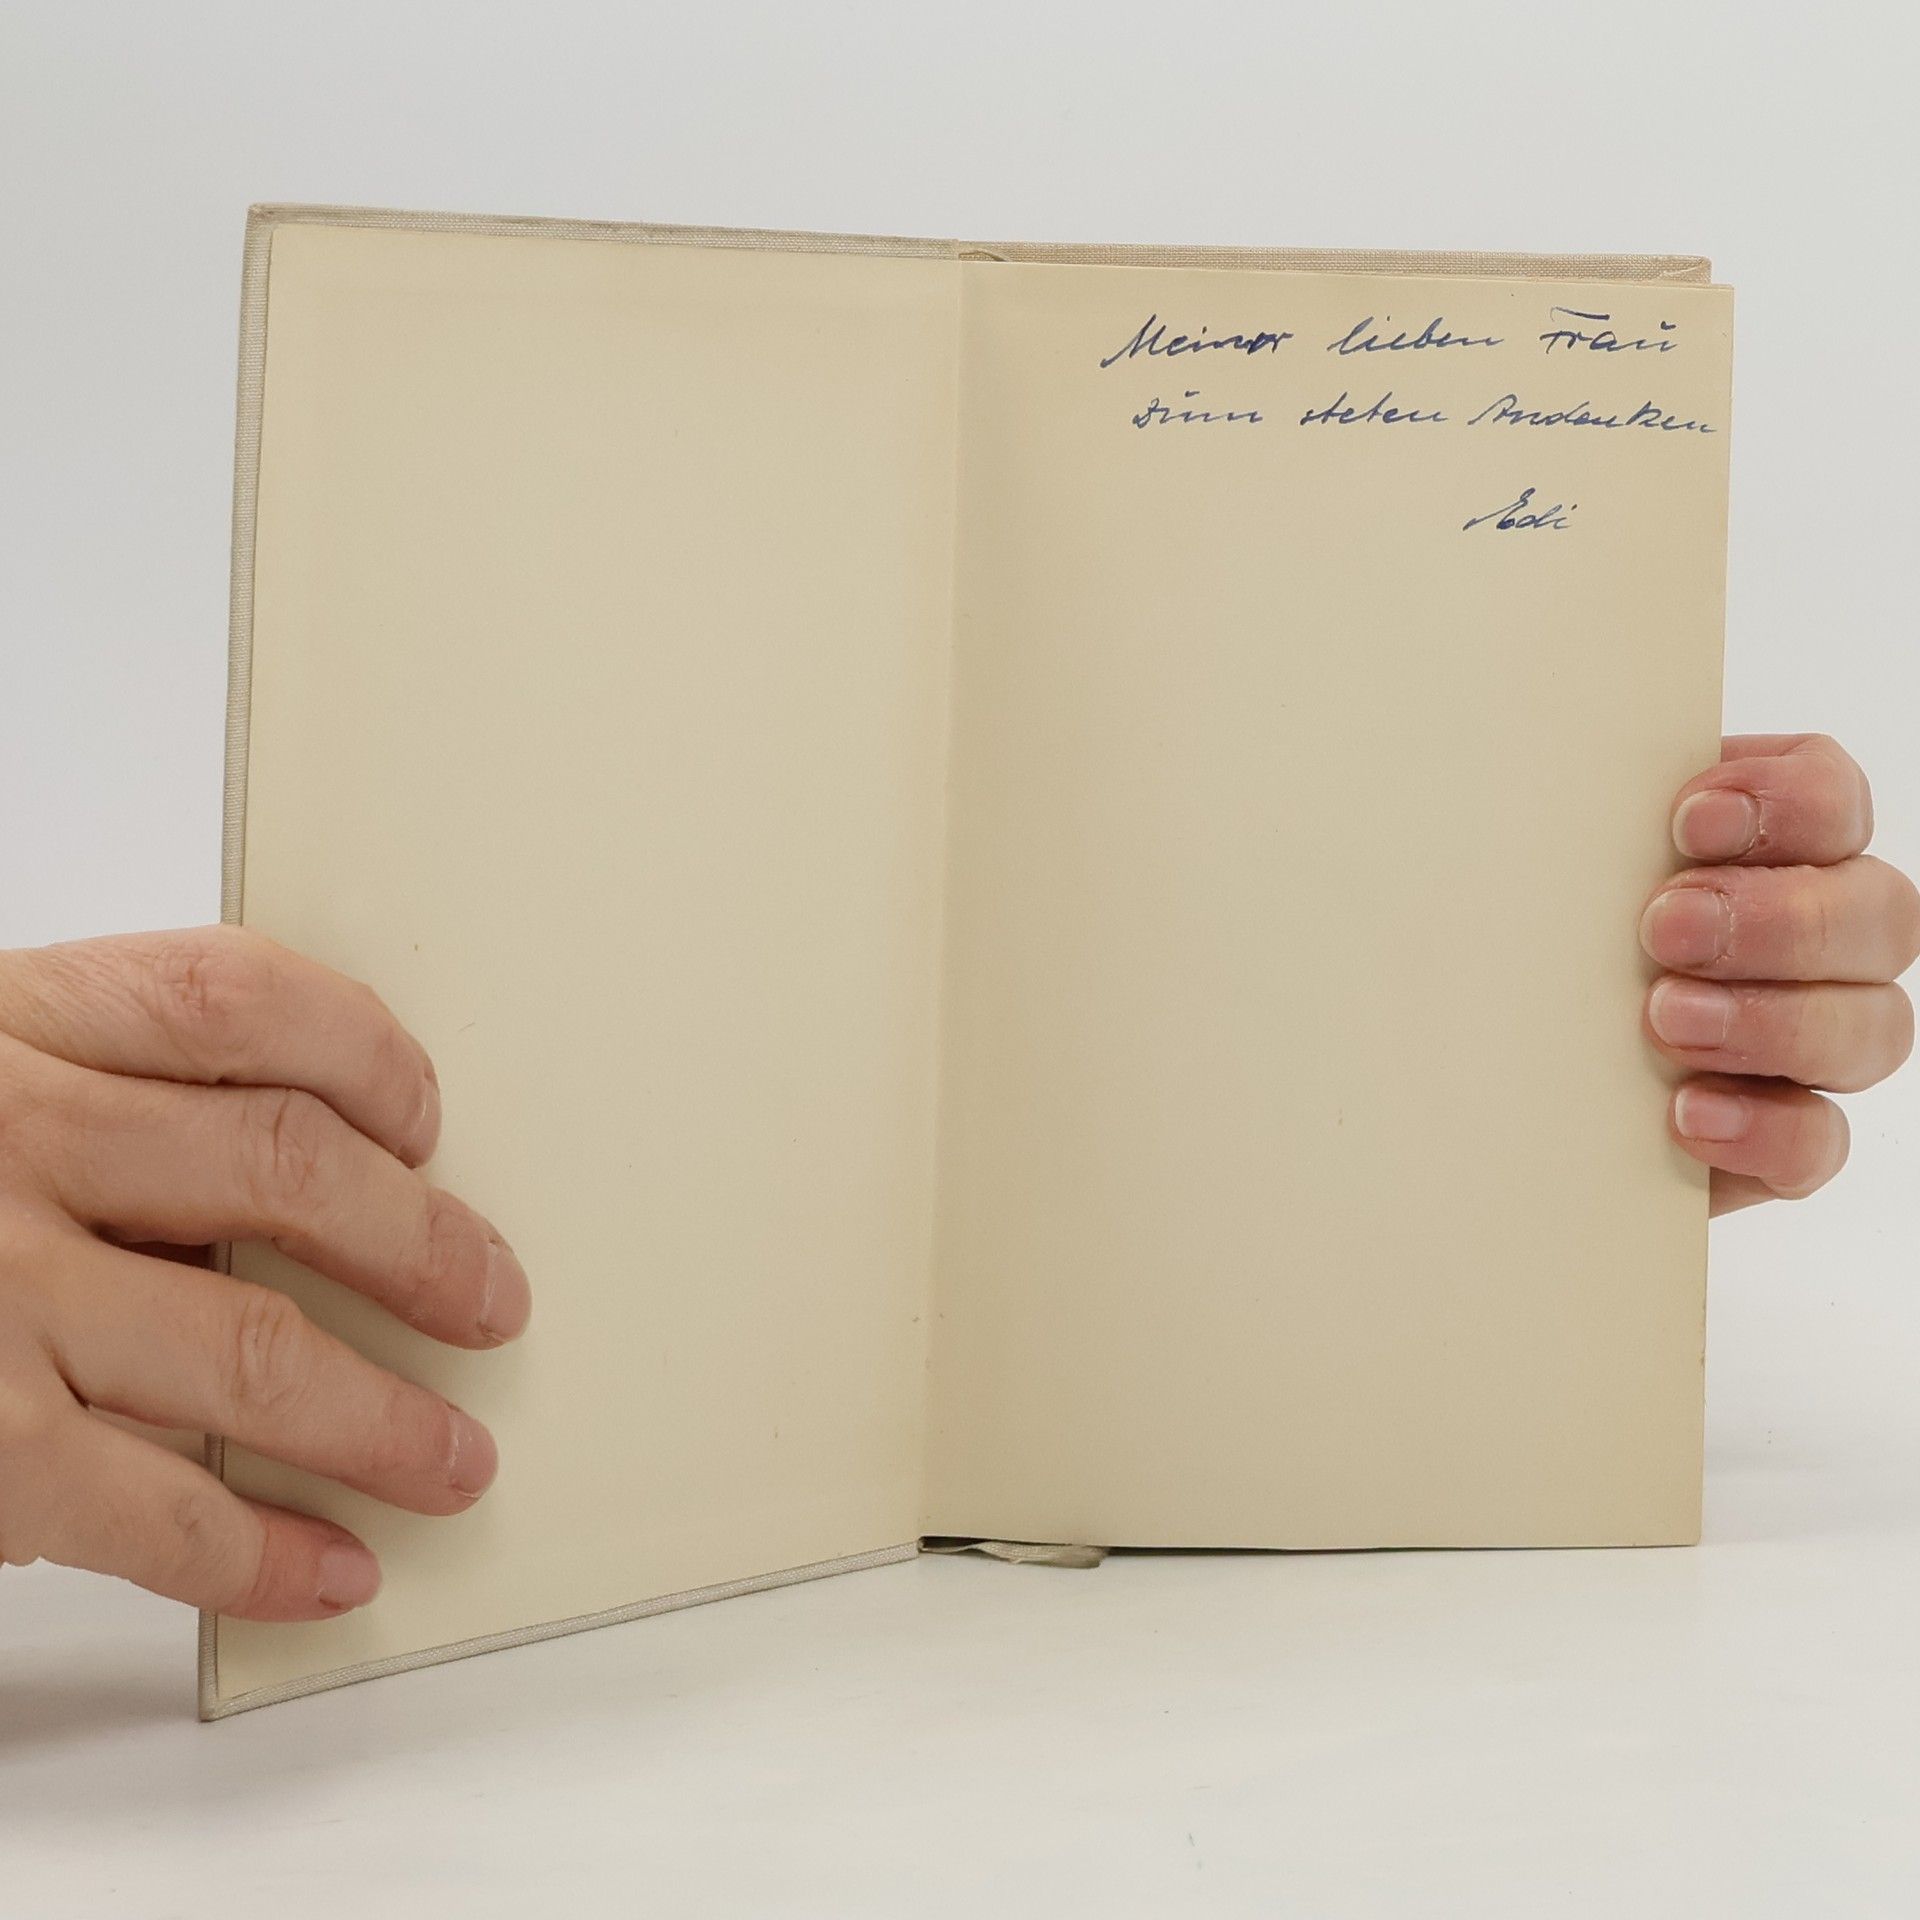 Meiner lieben Frau
zum steten Andenken
Edi